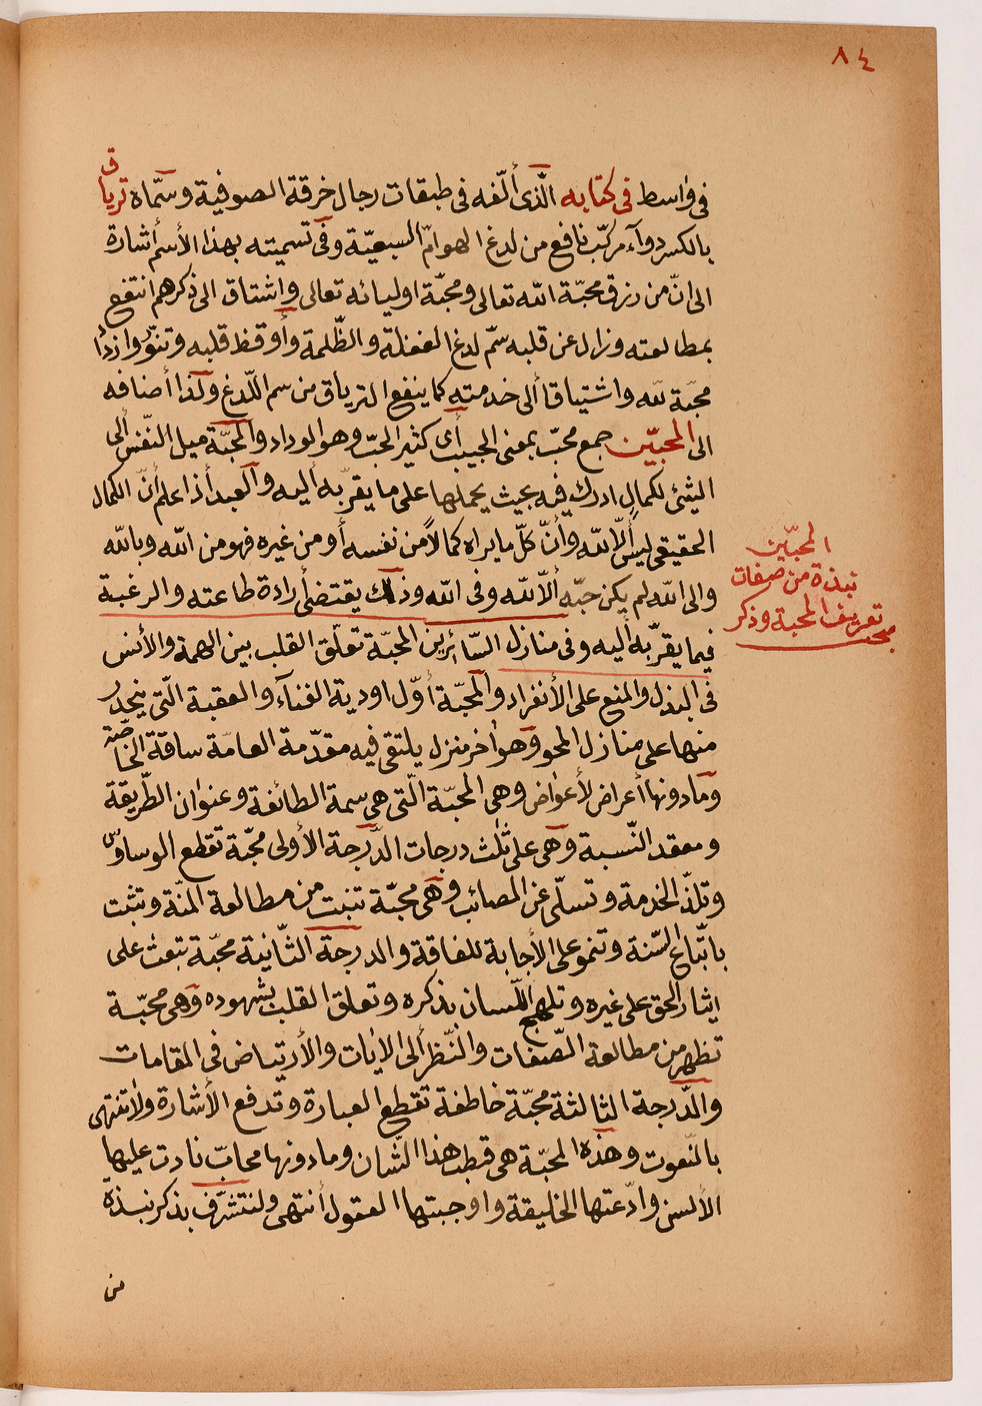 ٨٤
فى واسط فى كتابه الّذى ألّفه فى طبقات رجال خرقة الصوفية وسمّاه ترياق
بالكسر دوآء مركّب نافع من لدغ الهوامّ السبعيّة وفى تسميته بهذا الأسم أشارة
الى انّ من رزق محبّة الله تعالى ومحبّة اوليائه تعالى واشتاق الى ذكرهم انتفع
بمطالعته وزال عن قلبه سمّ لدغ الغفلة والظّلمة وأوقظ قلبه وتنوّر وازداد
محبّة لله واشتياقا ألى خدمته كما ينفع الترياق من سم اللّدغ ولذا أضافه
الى المحبّين جمع محبّ بمعنى الحبيب أى كثير الحبّ وهو الوداد والمحبّة ميل النّفس ألى
الشئ لكمال ادرك فيه بحيث يحملها على ما يقرّبه أليه والعبد أذا علم أنّ الكمال
الحقيقى ليس ألّا لله وأنّ كلّ ما يراه كمالاً من نفسه أو من غيره فهو من الله وبالله
والى الله لم يكن حبّه ألّا لله وفى الله وذلك يقتضى أرادة طاعته والرغبة
فيما يقرّبه أليه وفى منازل السّائرين المحبّة تعلّق القلب بين الهمة والأنس
فى البذل والمنع على الأنفراد والمحبّة أوّل اودية الفنآء والعقبة الّتى ينحدر
منها على منازل المحو وهو اخر منزل يلتقى فيه مقدّمة العامّة ساقة الخاصّة
وما دونها أعراض لأعواض وهى المحبّة الّتى هى سمة الطائفة وعنوان الطّريقة
ومعقد النّسبة وهى على ثلث درجات الدّرجة الأولى محبّة تقطع الوساوس
وتلذّ الخدمة وتسلّى عن المصائب وهى محبّة تنبت من مطالعة المنّة وتثبت
باتّباع السّنة وتنمو على الأجابة للفاقة والدرجة الثّانية محبّة تبعث على
ايثار الحق على غيره وتلهج اللّسان بذكره وتعلق القلب بشهوده وهى محبّة
تظهر من مطالعة الصّفات والنّظر ألى الايات والأرتياض فى المقامات
والدّرجة الثالثة محبّة خاطفة تقطع العبارة وتدفع الأشارة ولا تنتهى
بالنّعوت وهذه المحبّة هى قطب هذا الشّان وما دونها محابّ نادت عليها
الألسن وادّعتها الخليقة واوجبتها العقول أنتهى ولنتشرّف بذكر نبذة
المحبّين
نبذة من صفات
تعريف المحبة وذكر
من